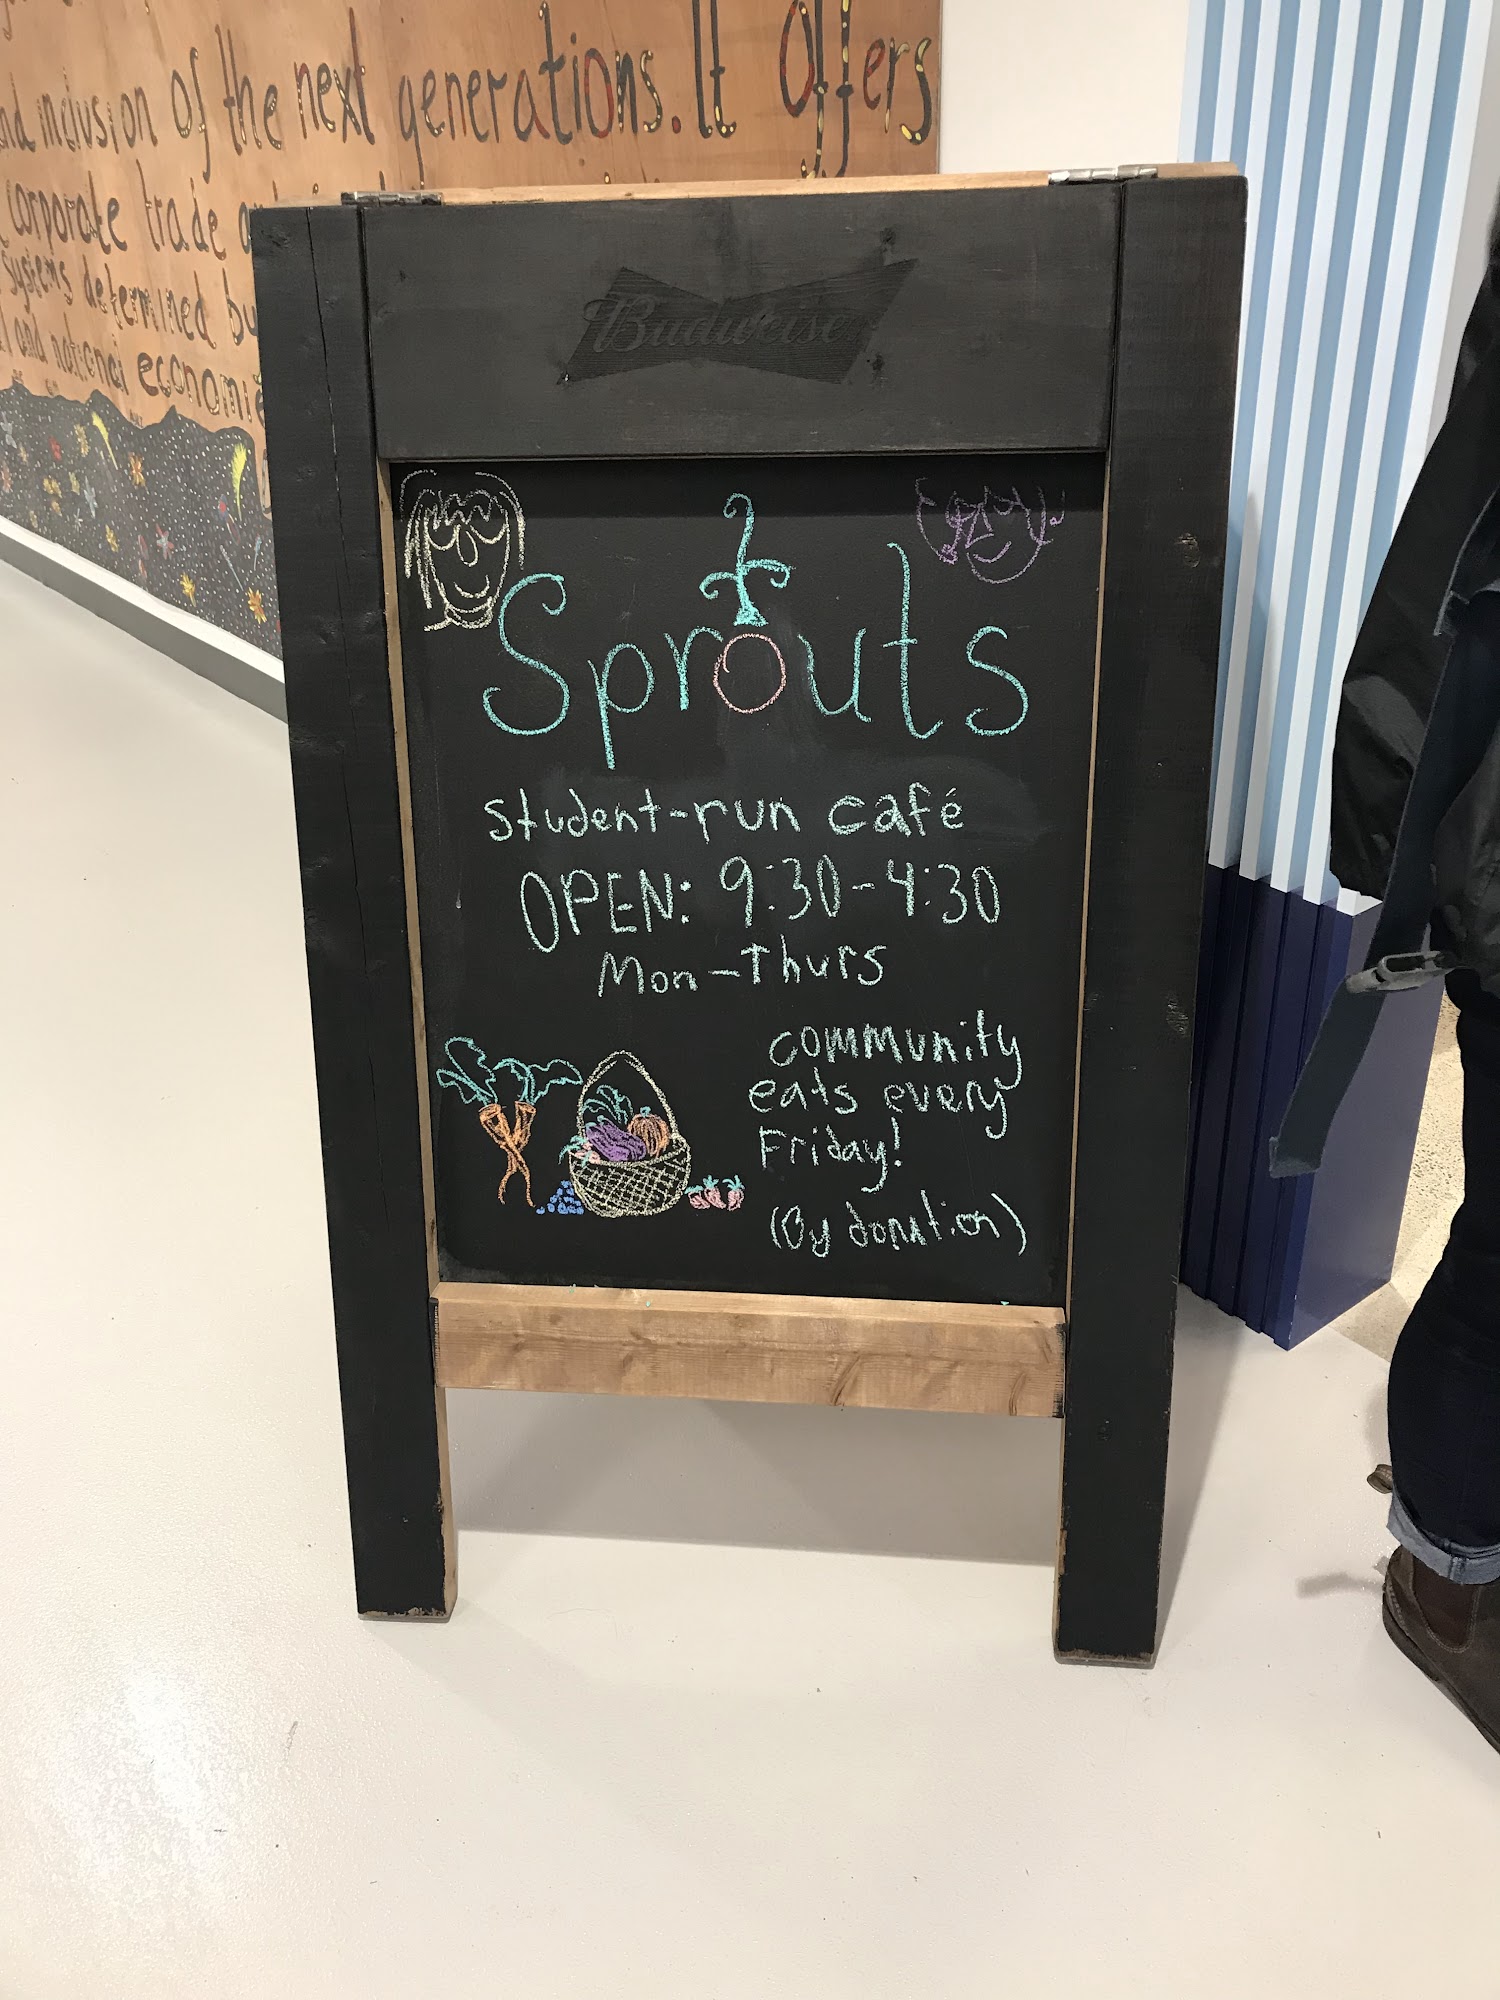 nd inclusion of the next generations. It offers
corporate trade
systems determined by
and national economie
Budweiser
Sprouts
student-run café
OPEN: 9:30-4:30
Mon-Thurs
community
eats every
Friday!
(By donation)